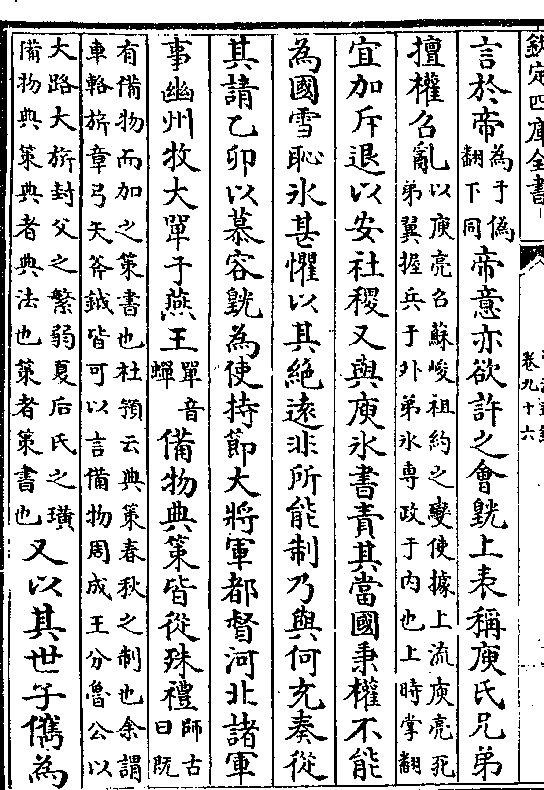 欽定四庫全書
卷九十六
言於帝為于偽翻下同帝意亦欲許之會皝上表稱庾氏兄弟
擅權召亂以庾亮召蘇峻祖約之變使據上流庾亮死弟翼握兵于外弟氷專政于内也上時掌翻
宜加斥退以安社稷又與庾氷書責其當國秉權不能
為國雪恥氷甚懼以其絶遠非所能制乃與何充奏從
其請乙卯以慕容皝為使持節大將軍都督河北諸軍
事幽州牧大單于燕王單音蟬備物典策皆從殊禮師古曰既
有備物而加之策書也杜預云典策春秋之制也余謂車輅旂章弓矢斧鉞皆可以言備物周成王分魯公以
大路大旂封父之繁弱夏后氏之璜備物典策典者典法也策者策書也又以其世子儁為